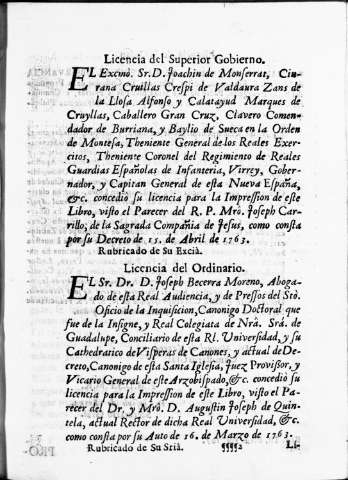 Licencia del Superior Gobierno.
EL Excmò. Sr. D. Joachin de Monserrat, Ciu-
rana Cruillas Crespi de Valdaura Zans de
la Llosa Alfonso y Calatayud Marques de
Cruyllas, Caballero Gran Cruz, Clavero Comen-
dador de Burriana, y Baylio de Sueca en la Orden
de Montesa, Theniente General de los Reales Exer-
citos, Theniente Coronel del Regimiento de Reales
Guardias Españolas de Infanteria, Virrey, Gober-
nador, y Capitan General de esta Nueva España,
&c. concediò su licencia para la Impression de este
Libro, visto el Parecer del R. P. Mrò. Joseph Car-
rillo, de la Sagrada Compañia de Jesus, como consta
por su Decreto de 15. de Abril de 1763.
Rubricado de Su Excià.
Licencia del Ordinario.
EL Sr. Dr. D. Joseph Becerra Moreno, Aboga-
do de esta Real Audiencia, y de Pressos del Stò.
Oficio de la Inquisicion, Canonigo Doctoral que
fue de la Insigne, y Real Colegiata de Nrâ. Srâ. de
Guadalupe, Conciliario de esta Rl. Universidad, y su
Cathedratico de Visperas de Canones, y actual de De-
creto, Canonigo de esta Santa Iglesia, Juez Provisor, y
Vicario General de este Arzobispado, &c. concediò su
licencia para la Impression de este Libro, visto el Pa-
recer del Dr. y Mrò. D. Augustin Joseph de Quin-
tela, actual Rector de dicha Real Universidad, &c.
como consta por su Auto de 16. de Marzo de 1763.
Rubricado de Su Srià. ¶¶¶¶2 Li-
PRO-